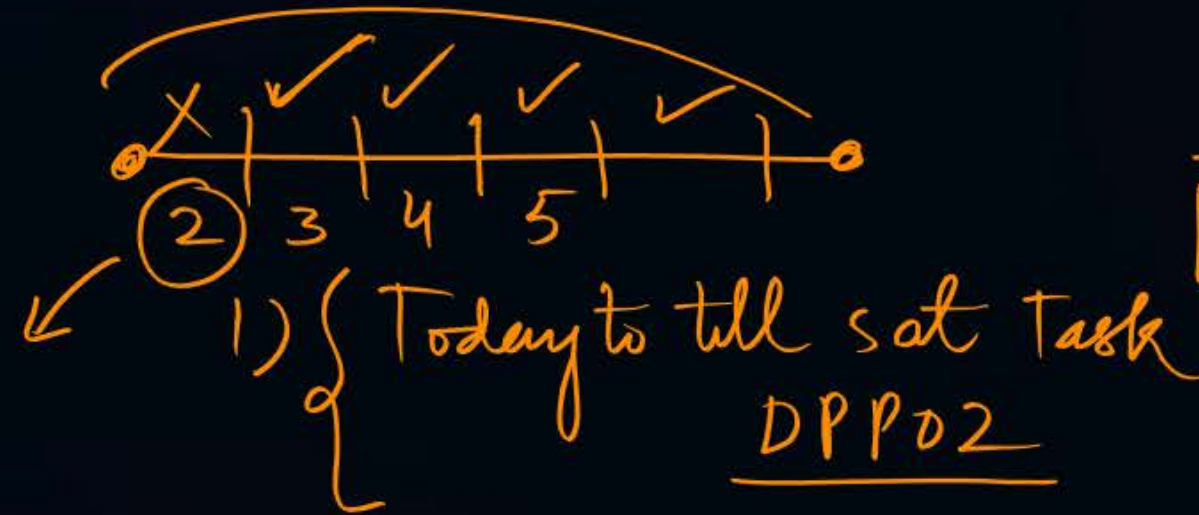 2 3 4 5
1) { Today to till sat Task
DPP02